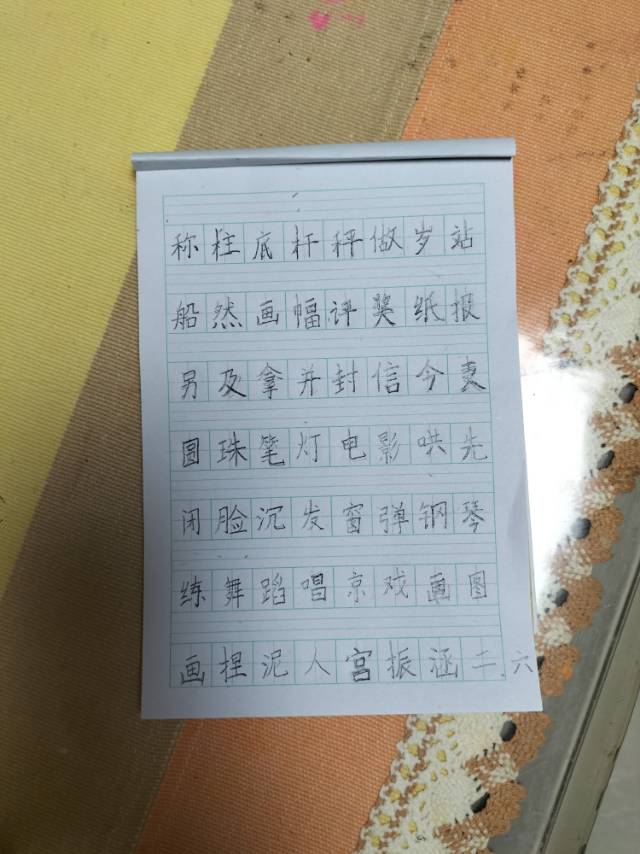 称柱底杆秤做岁站
船然画幅评奖纸报
另及拿并封信今表
圆珠笔灯电影哄先
闭脸沉发窗弹钢琴
练舞蹈唱京戏画图
画捏泥人宫振涵二.六